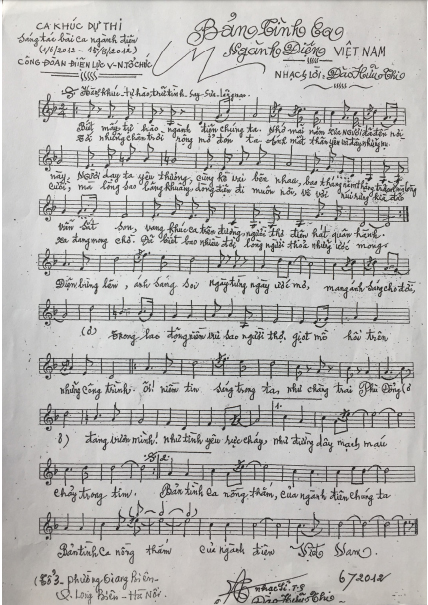 CA KHÚC DỰ THI
Sáng tác bài ca ngành điện
(1/6/2012 - 15/8/2012)
CÔNG ĐOÀN ĐIỆN LỰC V-N TỔ CHỨC
Bản Tình Ca
Ngành Điện VIỆT NAM
NHẠC & LỜI: Đào Hữu Thi
Hành khúc - tự hào, trữ tình - Say sưa
Biết mấy tự hào ngành điện chúng ta. Nhớ mãi năm xưa NGƯỜI đã đến nơi
Tới những chân trời rộng mở đón ta
này. NGƯỜI dạy ta yêu thương, cùng kề vai bên nhau, bao tháng năm
cười, mà lòng sao lâng lâng, dòng điện đi muôn nơi, về với núi rừng
vẫn sắt son, vang khúc ca trên đường, người thợ điện hát quân hành
xa đang mong chờ. Để biết bao nhiêu đời lòng người thỏa những ước mong.
Điện bừng lên, ánh sáng soi ngày từng ngày ước mơ, mang ánh sáng cho đời,
(ơ) Trong lao động sao người thợ. giọt mồ hôi trên
những công trình. Ôi! niềm tin sáng trong ta, như chàng trai Phù Đổng (ơ
ơ) đang vươn mình! như tình yêu rực cháy, như đường dây mạch máu
chảy trong tim. Bản tình ca nồng thắm, của ngành điện chúng ta
Bản tình Ca nồng thắm của ngành điện Việt Nam.
(Tổ 3. Phường Giang Biên.
Q. Long Biên - Hà Nội
nhạc sĩ
Đào Hữu Thi
6/2012